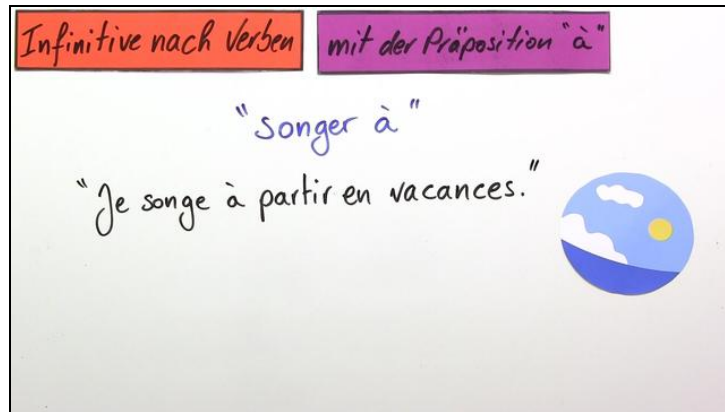 Infinitive nach Verben mit der Präposition "à"
"songer à"
"Je songe à partir en vacances."